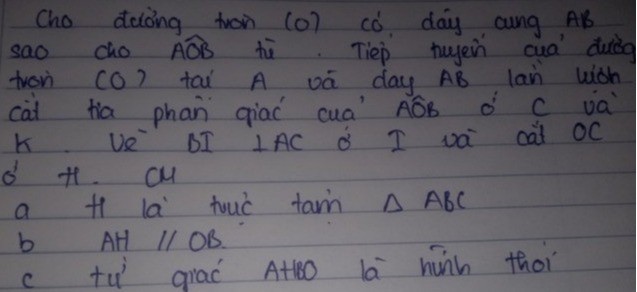 Cho đường tròn (O) có dây cung AB
sao cho AÔB tù. Tiếp tuyến của đường
tròn (O) tại A và dây AB lần lượt
cắt tia phân giác của AÔB ở C và
K. Vẽ BI ⊥ AC ở I và cắt OC
ở H. CM
a H là trực tâm Δ ABC
b AH // OB
c tứ giác AHBO là hình thoi